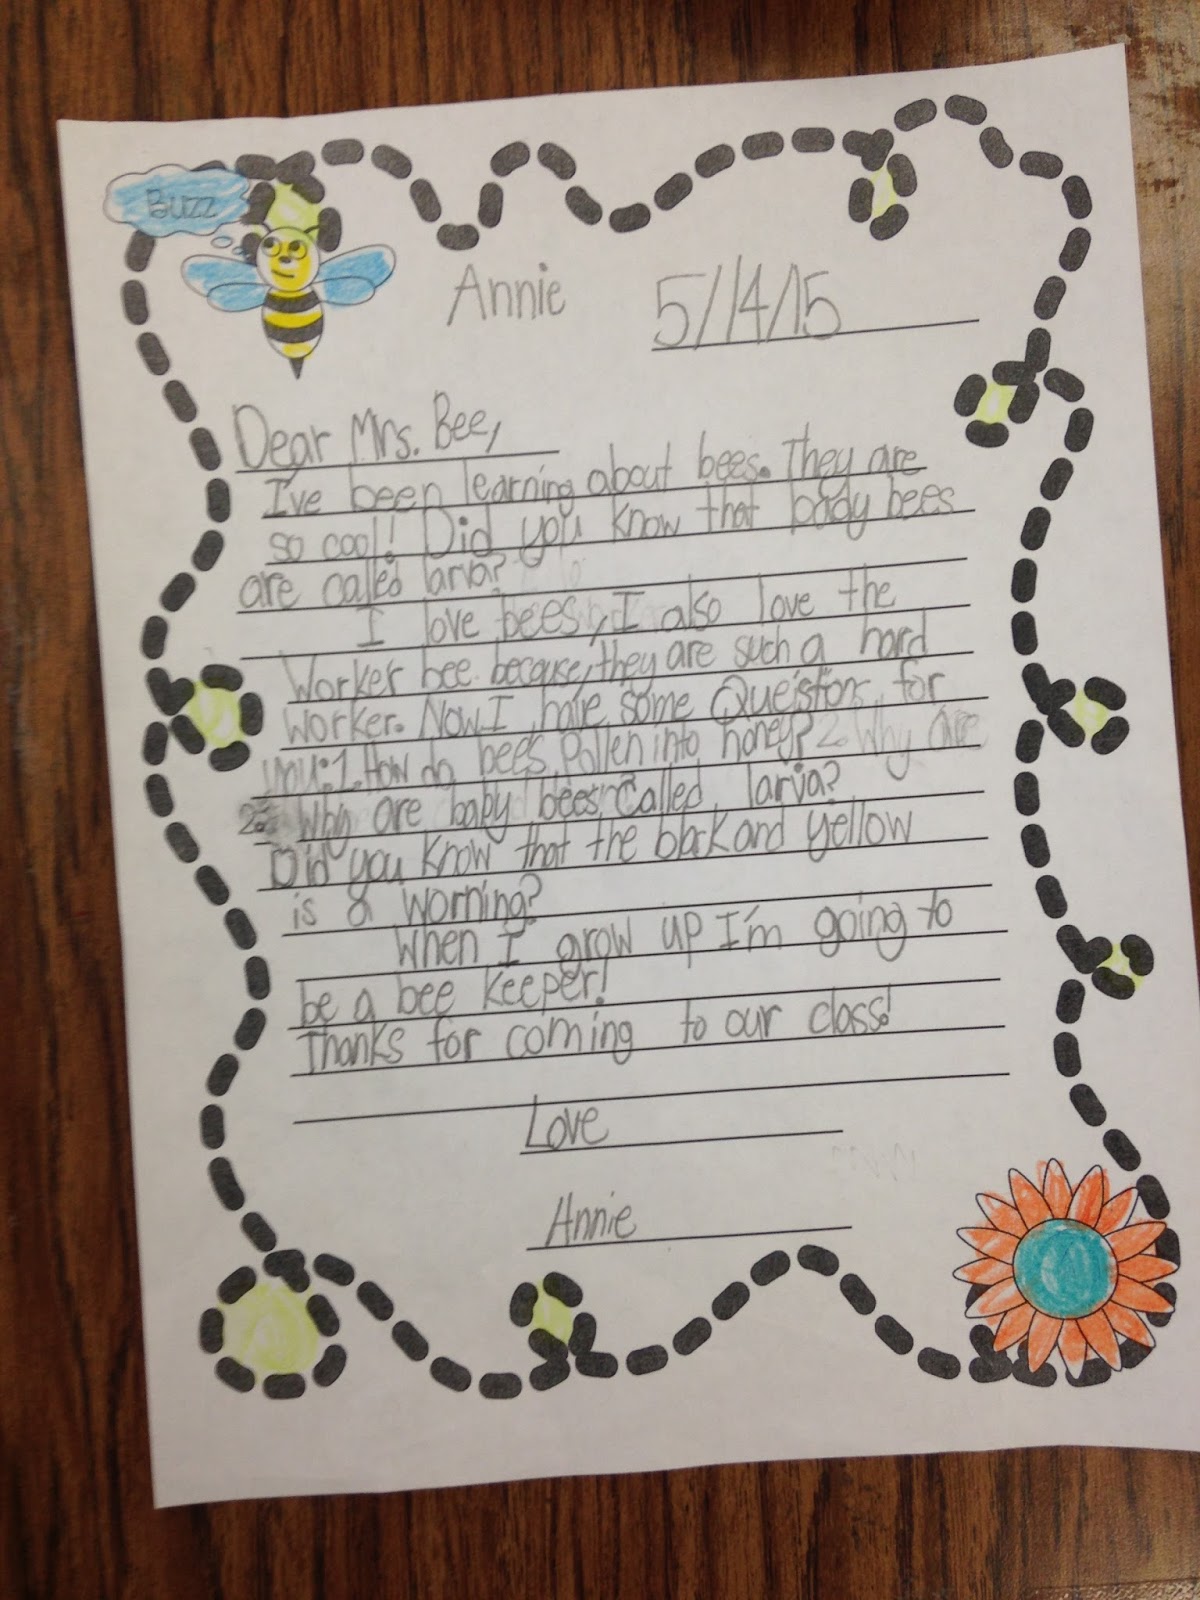 Buzz
Annie 5/14/15
Dear Mrs. Bee,
I've been learning about bees. They are
so cool! Did you know that baby bees
are called larva?
I love bees, I also love the
Worker bee because, they are such a hard
worker. Now I have some Questions for
you: 1. How do bees Pollen into honey? 2. Why are
2. Why are baby bees Called larva?
Did you know that the black and yellow
is a worning?
When I grow up I'm going to
be a bee keeper!
Thanks for coming to our class!
Love
Annie